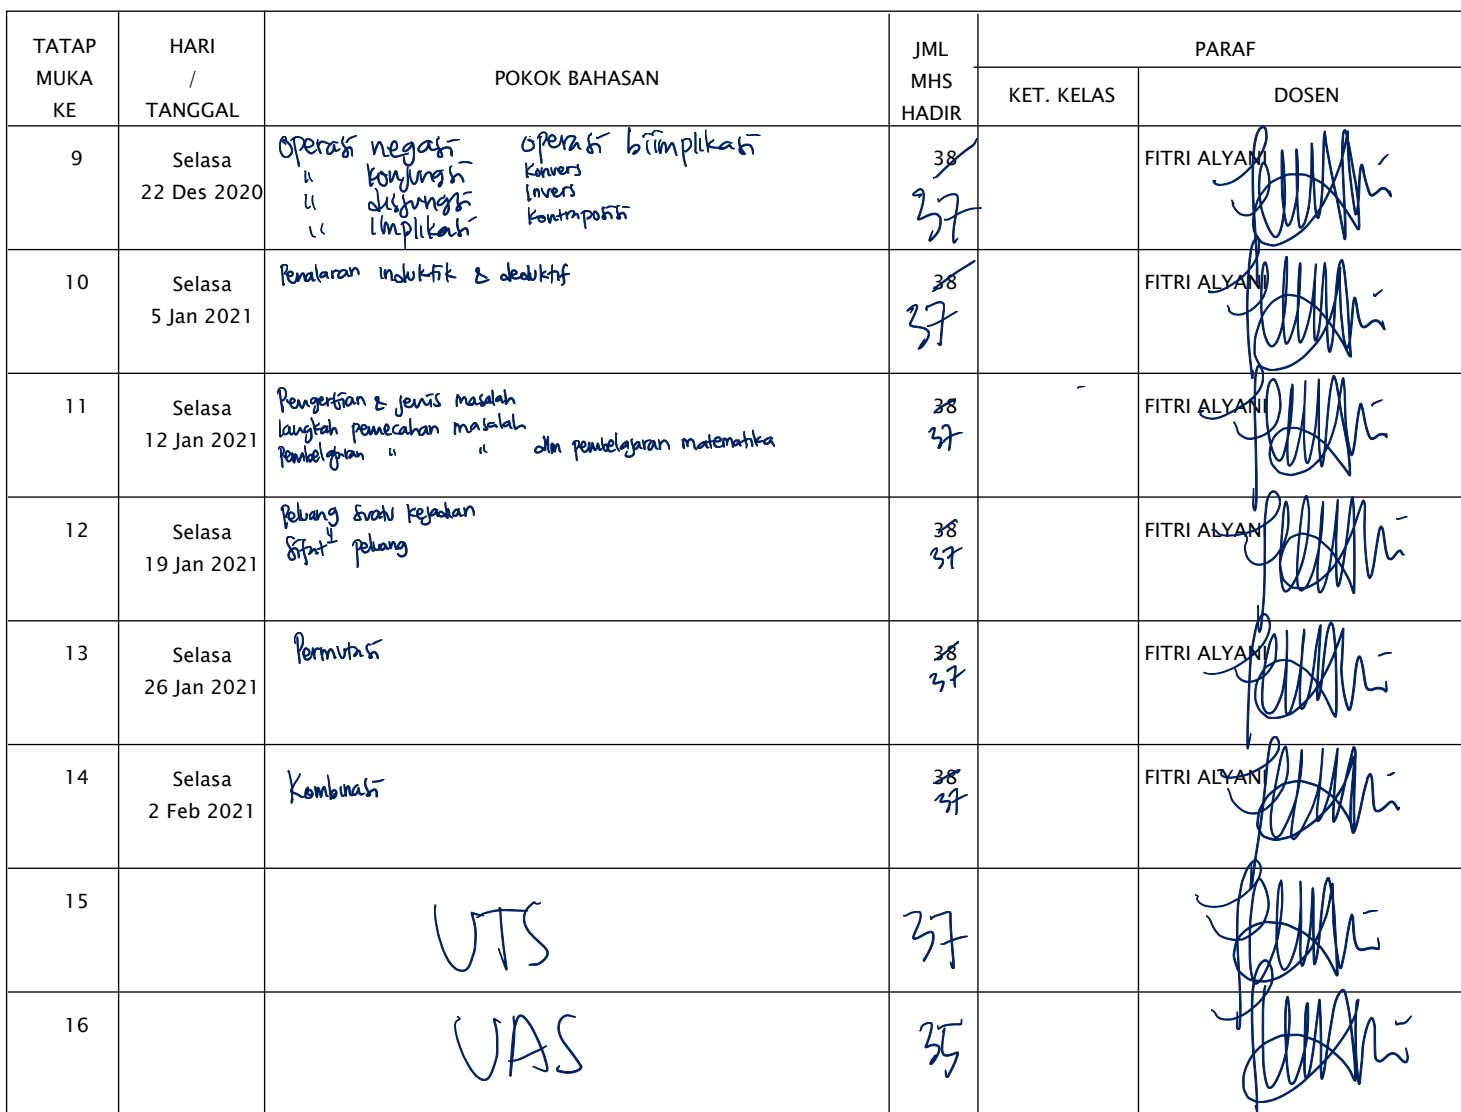 TATAP MUKA KE HARI / TANGGAL POKOK BAHASAN JML MHS HADIR PARAF
KET. KELAS DOSEN
9 Selasa 22 Des 2020
operasi negasi operasi biimplikasi
" konjungsi Konvers
" disjungsi Invers
" implikasi Kontraposisi
38
37
FITRI ALYANI
10 Selasa 5 Jan 2021
Penalaran induktik & deduktif
38
37
FITRI ALYANI
11 Selasa 12 Jan 2021
Pengertian & jenis masalah
langkah pemecahan masalah
Pembelajaran " " dlm pembelajaran matematika
38
37
FITRI ALYANI
12 Selasa 19 Jan 2021
Peluang suatu kejadian
Sifat" peluang
38
37
FITRI ALYANI
13 Selasa 26 Jan 2021
Permutasi
38
37
FITRI ALYANI
14 Selasa 2 Feb 2021
Kombinasi
38
37
FITRI ALYANI
15 UTS 37
16 UAS 35